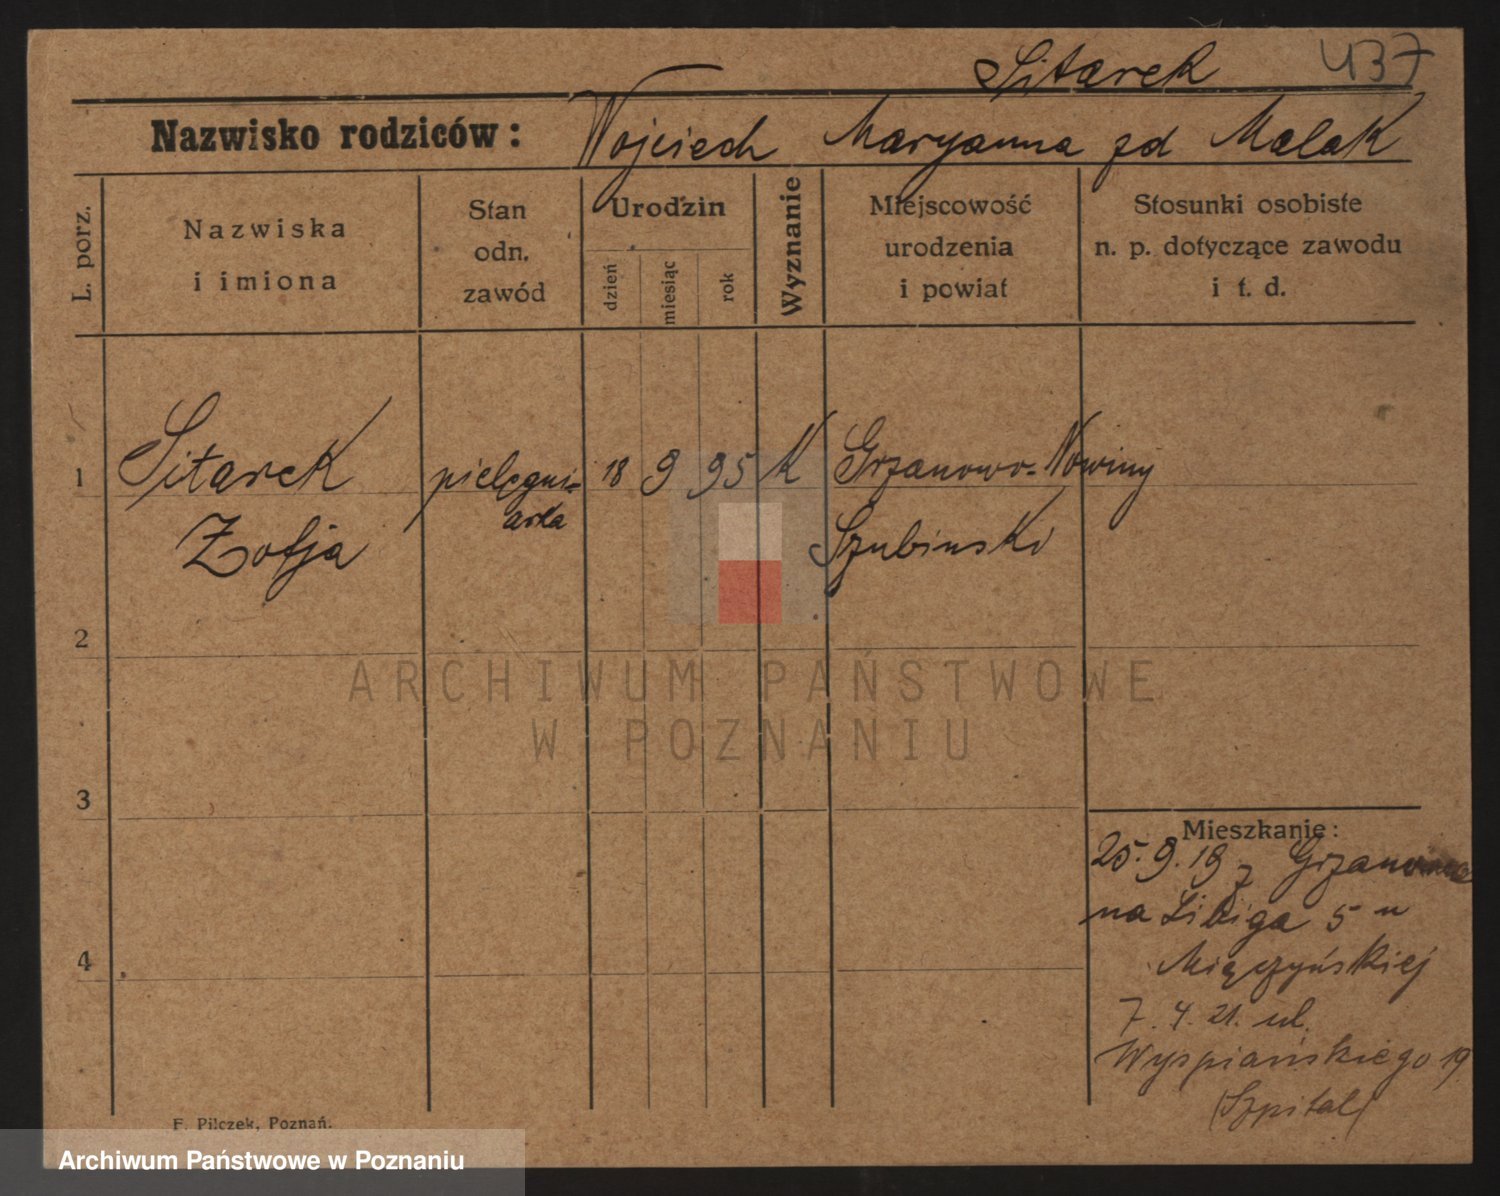 Sitarek 437
Nazwisko rodziców: Wojciech Maryanna zd Malak
L. porz.
Nazwiska
i imiona
Stan
odn.
zawód
Urodzin
dzień
miesiąc
rok
Wyznanie
Miejscowość
urodzenia
i powiat
Stosunki osobiste
n. p. dotyczące zawodu
i t. d.
1 Sitarek pielęgni- 18 9 95 K Grzanowo-Nowiny
arka
Zofja Szubinski
2
3
4
Mieszkanie:
25.9.19 z
na Libiga 5 u
Miączyńskiej
7.4.21. ul.
Wyspiańskiego 19
(Szpital)
F. Pilczek, Poznań.
ARCHIWUM PAŃSTWOWE
W POZNANIU
Archiwum Państwowe w Poznaniu